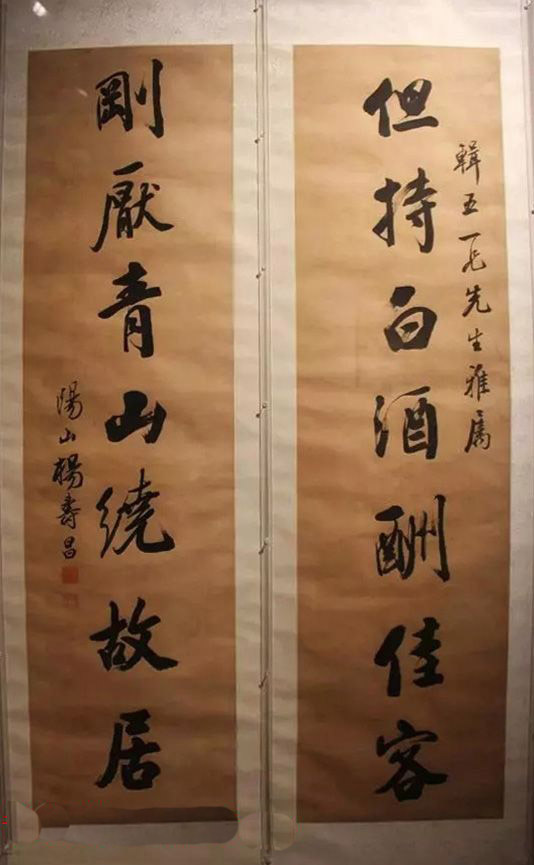 輯五一兄先生雅屬
但持白酒酬佳客
剛厭青山繞故居
陽山楊壽昌